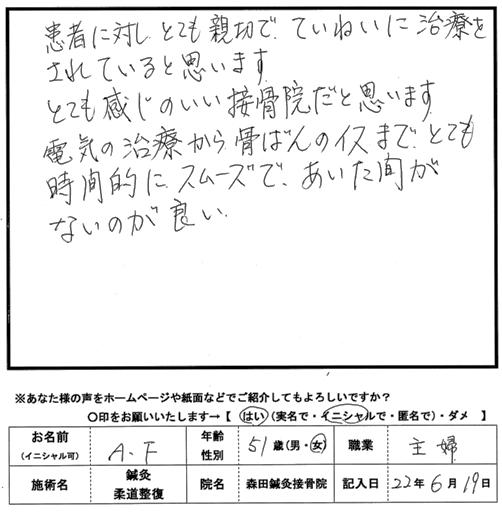 患者に対し とても親切で、ていねいに治療を
されていると思います
とても感じのいい接骨院だと思います
電気の治療から骨ばんのイスまで、とても
時間的に、スムーズで、あいた間が
ないのが良い.
※あなた様の声をホームページや紙面などでご紹介してもよろしいですか？
〇印をお願いいたします→【 はい（実名で・イニシャルで・匿名で）・ダメ 】
お名前（イニシャル可） A.F 年齢性別 51歳（男・女） 職業 主婦
施術名 鍼灸柔道整復 院名 森田鍼灸接骨院 記入日 22年6月19日